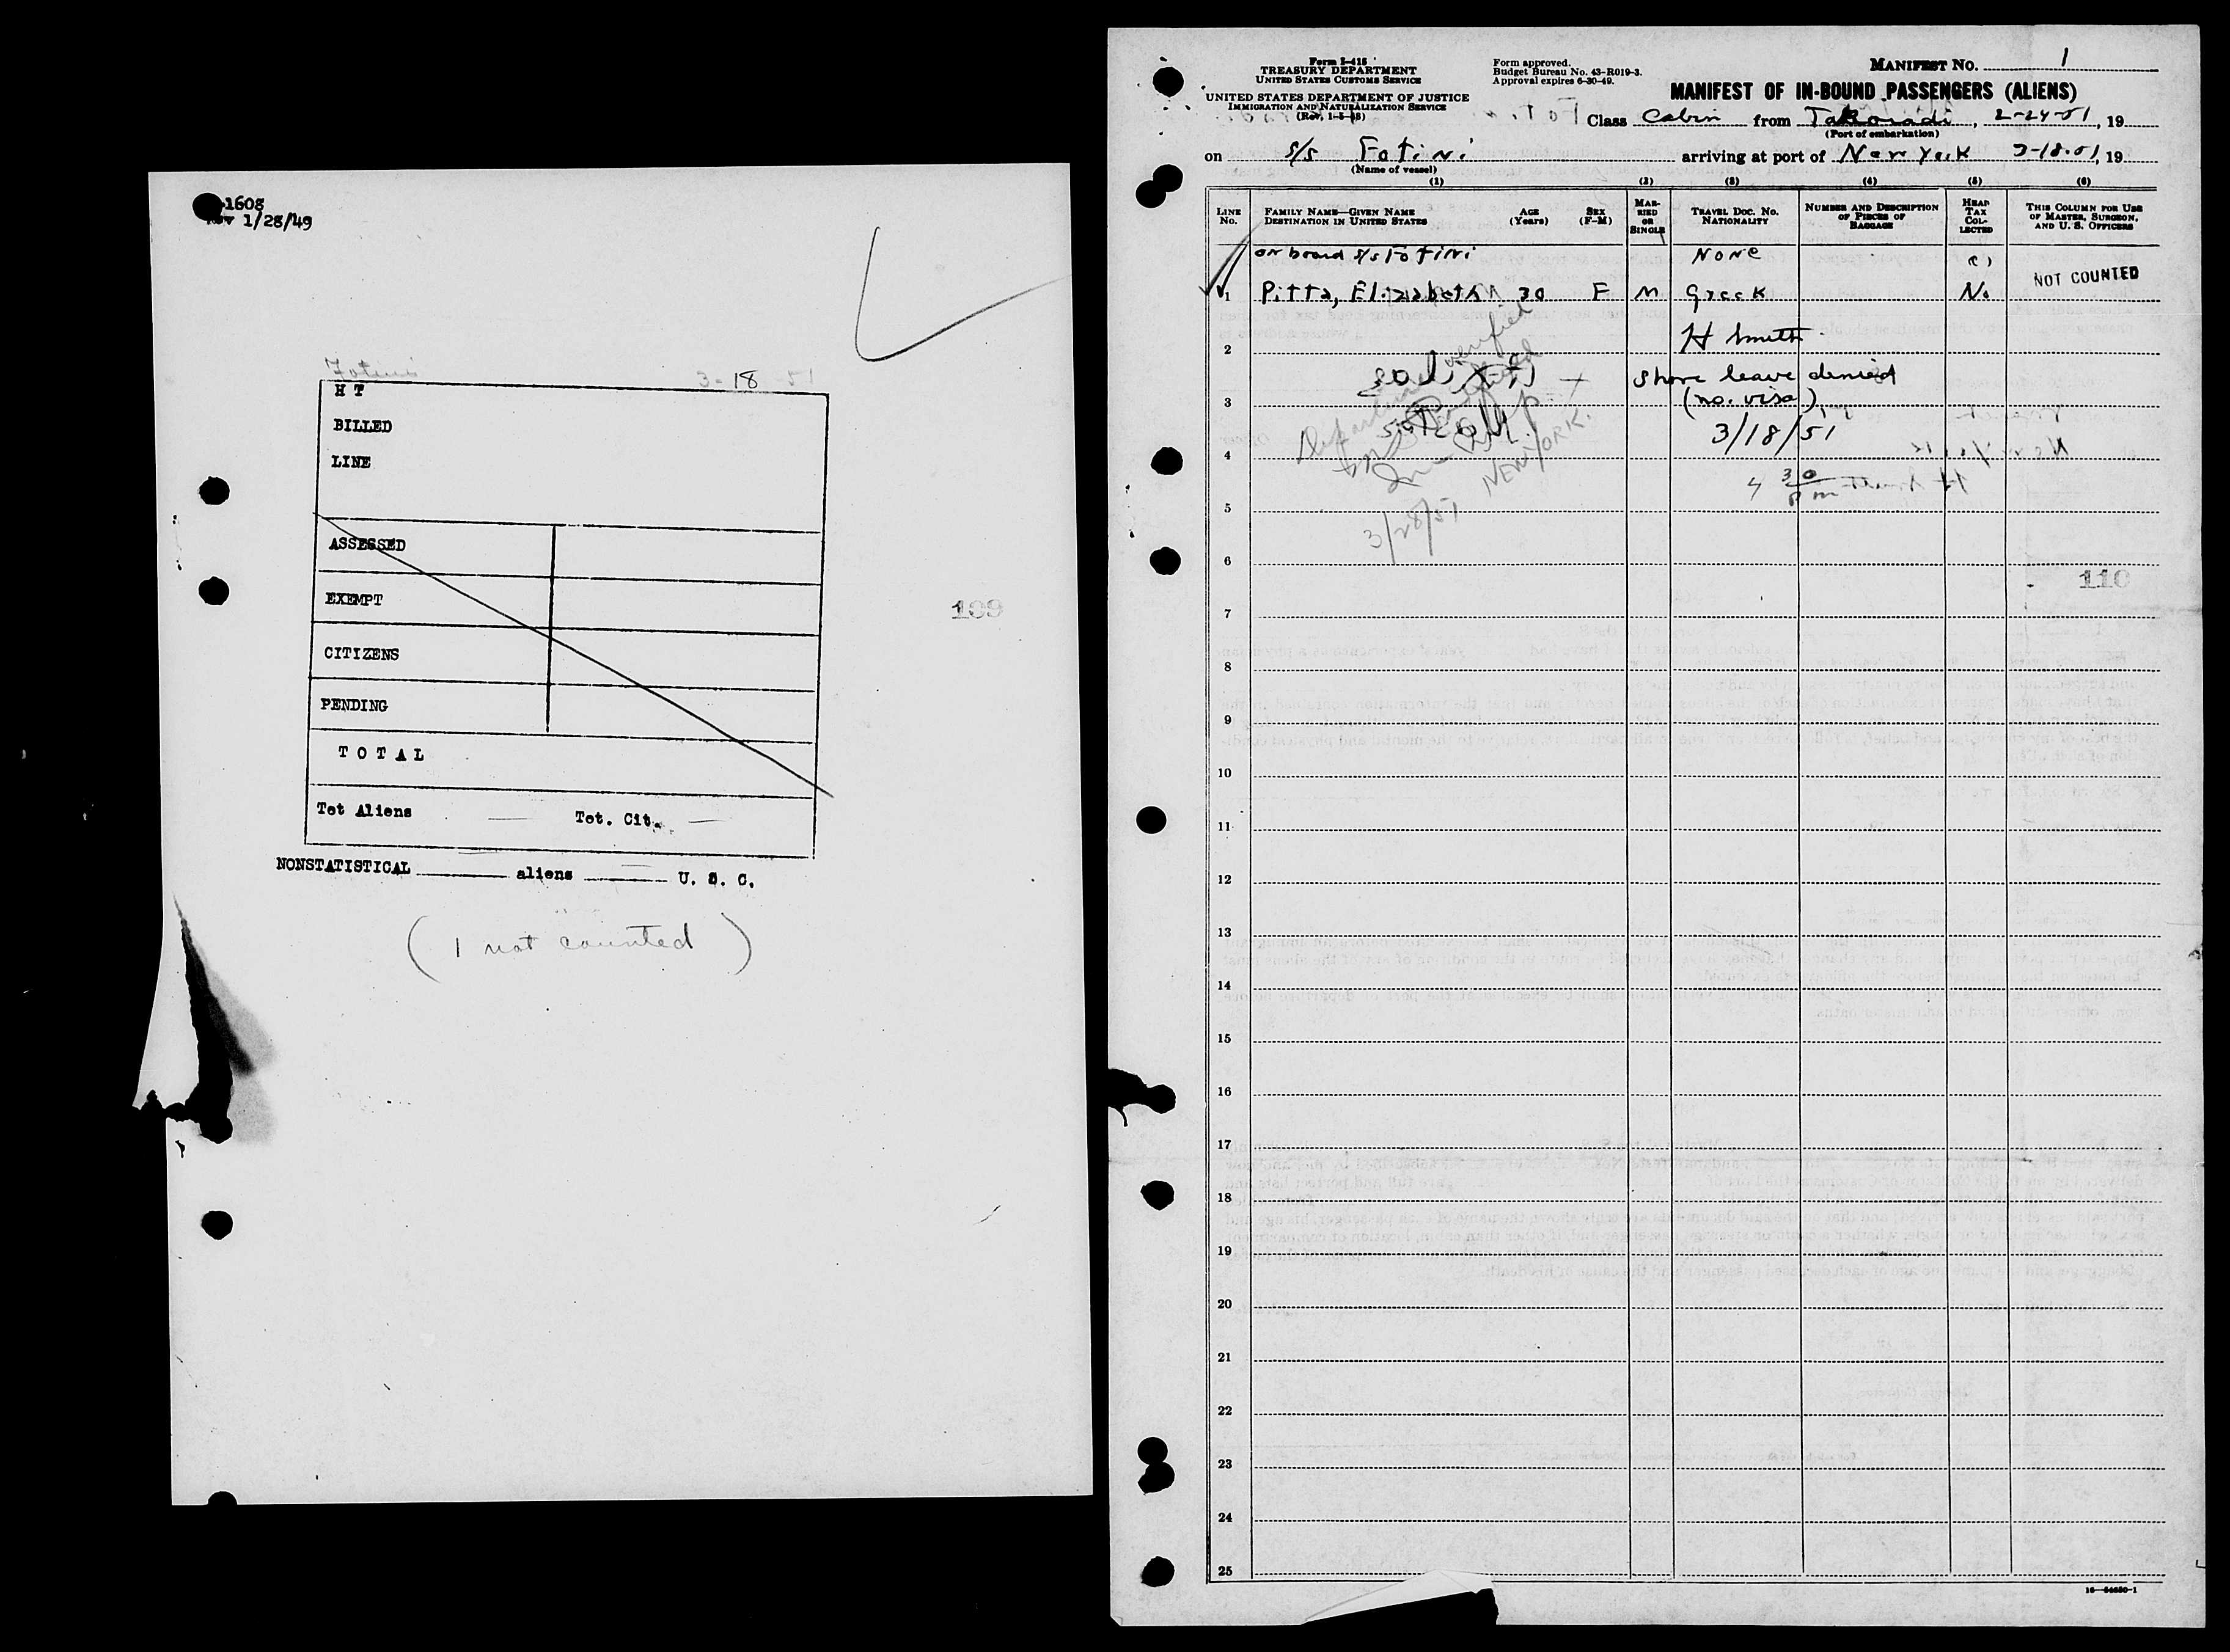 1608
Rev 1/28/49
Fotini 3-18 51
H T
BILLED
LINE
ASSESSED
EXEMPT
CITIZENS
PENDING
T O T A L
Tot Aliens Tot. Cit.
NONSTATISTICAL aliens U. S. C.
(1 not counted)
109
Form I-415
TREASURY DEPARTMENT
UNITED STATES CUSTOMS SERVICE
UNITED STATES DEPARTMENT OF JUSTICE
IMMIGRATION AND NATURALIZATION SERVICE
(Rev. 1-5-48)
Form approved.
Budget Bureau No. 43-R019-3.
Approval expires 6-30-49.
MANIFEST NO. 1
MANIFEST OF IN-BOUND PASSENGERS (ALIENS)
Class Cabin from Takoradi, 2-24-51, 19
(Port of embarkation)
on S/S Fotini arriving at port of New York 3-18-51, 19
(Name of vessel)
(1) (2) (3) (4) (5) (6)
LINE NO. FAMILY NAME—GIVEN NAME DESTINATION IN UNITED STATES AGE (Years) SEX (F-M) MARRIED OR SINGLE TRAVEL DOC. NO. NATIONALITY NUMBER AND DESCRIPTION OF PIECES OF BAGGAGE HEAD TAX COLLECTED THIS COLUMN FOR USE OF MASTER, SURGEON, AND U. S. OFFICERS
on board S/S Fotini None
1 Pitta, Elizabeth 30 F M Greek No NOT COUNTED
2 H Smith
shore leave denied
3 (no visa)
3/18/51
4
4 30 pm
5
verified
NEW YORK.
3/28/51
6
110
7
8
9
10
11
12
13
14
15
16
17
18
19
20
21
22
23
24
25